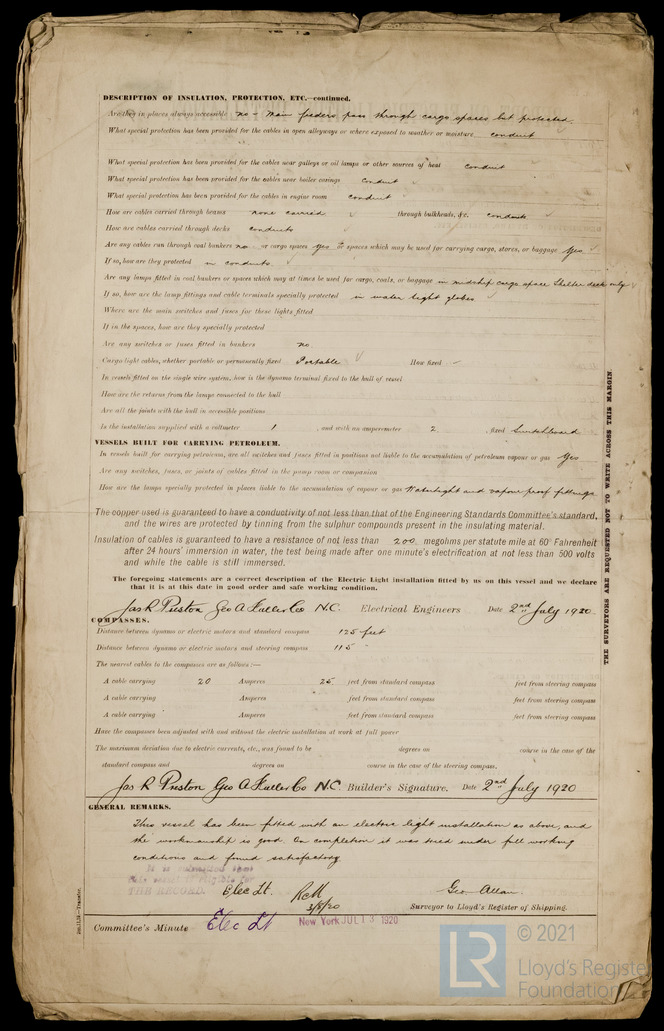 DESCRIPTION OF INSULATION, PROTECTION, ETC.—continued.
Are they in places always accessible no - Main feeders pass through cargo spaces but protected
What special protection has been provided for the cables in open alleyways or where exposed to weather or moisture conduit
What special protection has been provided for the cables near galleys or oil lamps or other sources of heat conduit
What special protection has been provided for the cables near boiler casings conduit
What special protection has been provided for the cables in engine room conduit
How are cables carried through beams none carried through bulkheads, &c. conduits
How are cables carried through decks conduits
Are any cables run through coal bunkers no or cargo spaces yes or spaces which may be used for carrying cargo, stores, or baggage yes
If so, how are they protected in conduits
Are any lamps fitted in coal bunkers or spaces which may at times be used for cargo, coals, or baggage in midship cargo space Shelter deck only
If so, how are the lamp fittings and cable terminals specially protected in water tight globes
Where are the main switches and fuses for these lights fitted
If in the spaces, how are they specially protected
Are any switches or fuses fitted in bunkers no
Cargo light cables, whether portable or permanently fixed Portable How fixed –
In vessels fitted on the single wire system, how is the dynamo terminal fixed to the hull of vessel
How are the returns from the lamps connected to the hull
Are all the joints with the hull in accessible positions
Is the installation supplied with a voltmeter 1 , and with an amperemeter 2 , fixed Switchboard
VESSELS BUILT FOR CARRYING PETROLEUM.
In vessels built for carrying petroleum, are all switches and fuses fitted in positions not liable to the accumulation of petroleum vapour or gas yes
Are any switches, fuses, or joints of cables fitted in the pump room or companion
How are the lamps specially protected in places liable to the accumulation of vapour or gas Watertight and vapour proof fittings
The copper used is guaranteed to have a conductivity of not less than that of the Engineering Standards Committee's standard,
and the wires are protected by tinning from the sulphur compounds present in the insulating material.
Insulation of cables is guaranteed to have a resistance of not less than 200 megohms per statute mile at 60° Fahrenheit
after 24 hours' immersion in water, the test being made after one minute's electrification at not less than 500 volts
and while the cable is still immersed.
The foregoing statements are a correct description of the Electric Light installation fitted by us on this vessel and we declare
that it is at this date in good order and safe working condition.
Jas R Preston Geo A Fuller Co N.C. Electrical Engineers Date 2nd July 1920
COMPASSES.
Distance between dynamo or electric motors and standard compass 125 feet
Distance between dynamo or electric motors and steering compass 115 "
The nearest cables to the compasses are as follows:—
A cable carrying 20 Amperes 25 feet from standard compass feet from steering compass
A cable carrying Amperes feet from standard compass feet from steering compass
A cable carrying Amperes feet from standard compass feet from steering compass
Have the compasses been adjusted with and without the electric installation at work at full power
The maximum deviation due to electric currents, etc., was found to be degrees on course in the case of the
standard compass and degrees on course in the case of the steering compass.
Jas R Preston Geo A Fuller Co N.C. Builder's Signature. Date 2nd July 1920
GENERAL REMARKS.
This vessel has been fitted with an electric light installation as above, and
the workmanship is good. On completion it was tried under full working
conditions and found satisfactory
It is submitted that
this vessel is eligible for
THE RECORD. Elec Lt.
3/8/20
Geo. Allan.
Surveyor to Lloyd's Register of Shipping.
Committee's Minute Elec Lt New York JUL 13 1920
THE SURVEYORS ARE REQUESTED NOT TO WRITE ACROSS THIS MARGIN.
© 2021
LR
Lloyd's Register
Foundation